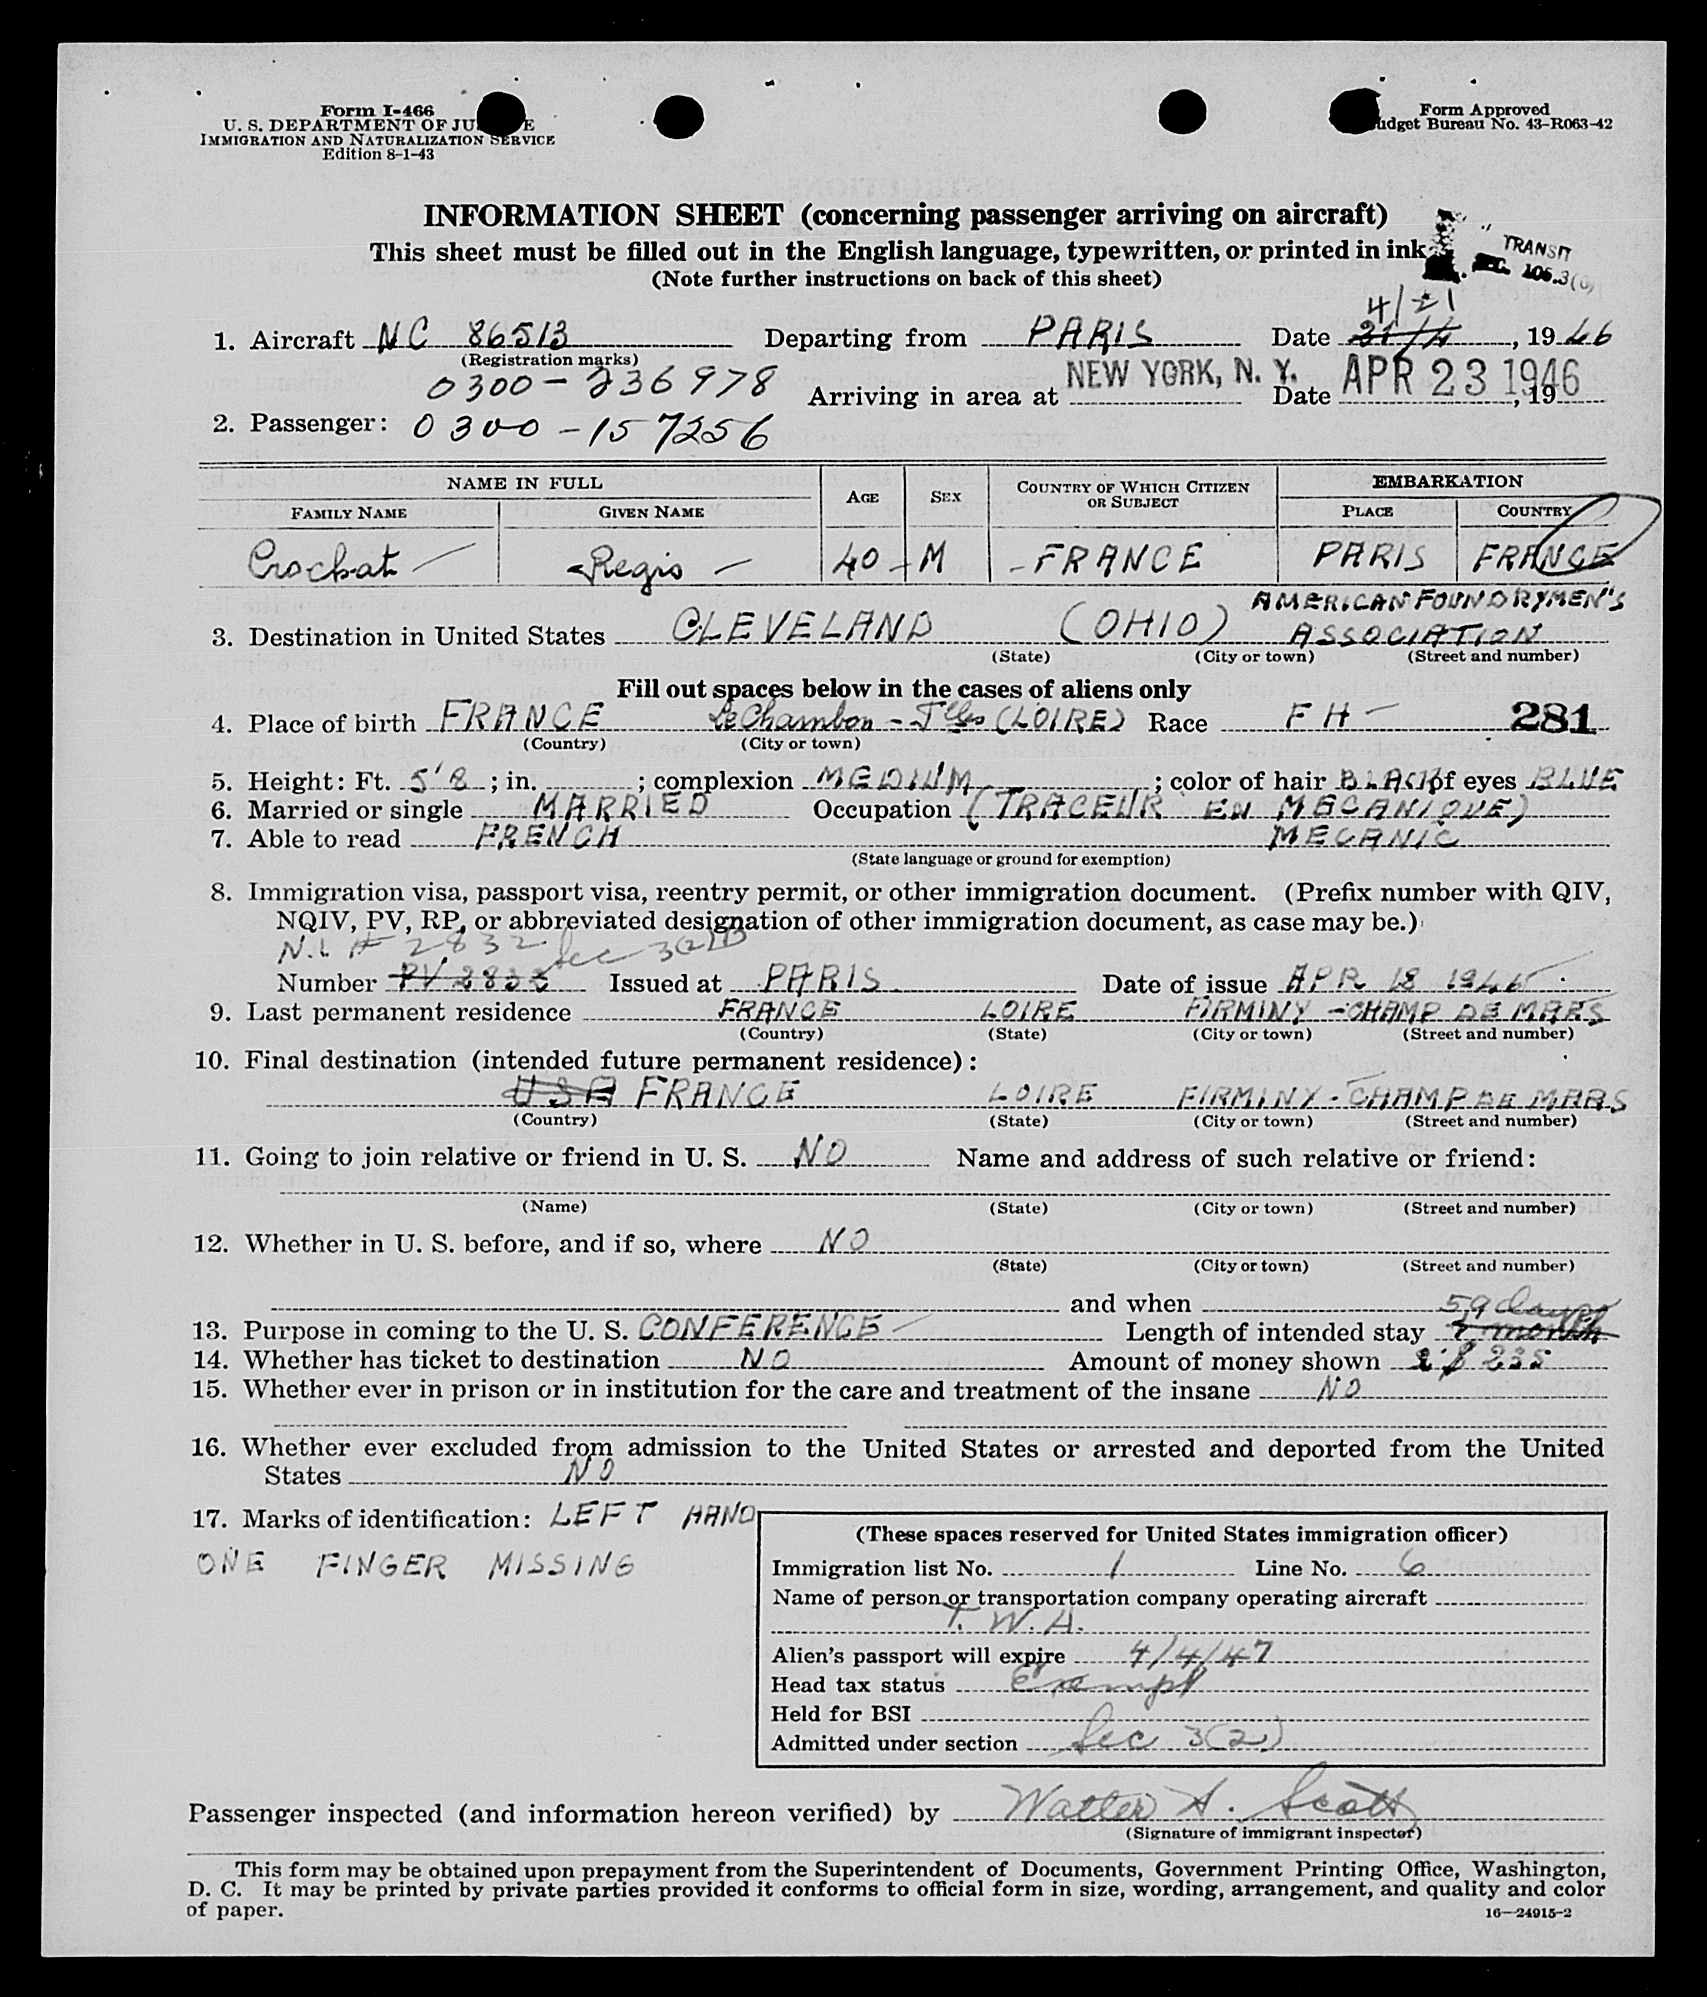 Form I-466
U. S. DEPARTMENT OF JU E
IMMIGRATION AND NATURALIZATION SERVICE
Edition 8-1-43
Form Approved
udget Bureau No. 43-R063-42
INFORMATION SHEET (concerning passenger arriving on aircraft)
This sheet must be filled out in the English language, typewritten, or printed in ink
(Note further instructions on back of this sheet)
TRANSIT
4/21
1. Aircraft NC 86513 Departing from PARIS Date 21/4, 1946
(Registration marks)
0300-236978 Arriving in area at NEW YORK, N. Y. Date APR 23 1946, 19
2. Passenger: 0300-157256
NAME IN FULL AGE SEX COUNTRY OF WHICH CITIZEN OR SUBJECT EMBARKATION
FAMILY NAME GIVEN NAME PLACE COUNTRY
Crochat - Regis - 40 - M - FRANCE PARIS FRANCE
AMERICAN FOUNDRYMEN'S
3. Destination in United States CLEVELAND (OHIO) ASSOCIATION
(State) (City or town) (Street and number)
Fill out spaces below in the cases of aliens only
4. Place of birth FRANCE Le Chambon - (LOIRE) Race FH - 281
(Country) (City or town)
5. Height: Ft. 5'8; in. ; complexion MEDIUM; color of hair BLACK of eyes BLUE
6. Married or single MARRIED Occupation (TRACEUR EN MECANIQUE)
7. Able to read FRENCH MECANIC
(State language or ground for exemption)
8. Immigration visa, passport visa, reentry permit, or other immigration document. (Prefix number with QIV,
NQIV, PV, RP, or abbreviated designation of other immigration document, as case may be.)
# 2832 Sec 3(2)B
Number PV 2832 Issued at PARIS Date of issue APR 18 1946
9. Last permanent residence FRANCE LOIRE FIRMINY - CHAMP DE MARS
(Country) (State) (City or town) (Street and number)
10. Final destination (intended future permanent residence):
USA FRANCE LOIRE FIRMINY - CHAMP DE MARS
(Country) (State) (City or town) (Street and number)
11. Going to join relative or friend in U. S. NO Name and address of such relative or friend:
(Name) (State) (City or town) (Street and number)
12. Whether in U. S. before, and if so, where NO
(State) (City or town) (Street and number)
and when 59 days
13. Purpose in coming to the U. S. CONFERENCE - Length of intended stay month
14. Whether has ticket to destination NO Amount of money shown $ 235
15. Whether ever in prison or in institution for the care and treatment of the insane NO
16. Whether ever excluded from admission to the United States or arrested and deported from the United
States NO
17. Marks of identification: LEFT HAND
ONE FINGER MISSING
(These spaces reserved for United States immigration officer)
Immigration list No. 1 Line No. 6
Name of person or transportation company operating aircraft
T. W. A.
Alien's passport will expire 4/4/47
Head tax status Exempt
Held for BSI
Admitted under section Sec 3(2)
Passenger inspected (and information hereon verified) by Walter A. Scott
(Signature of immigrant inspector)
This form may be obtained upon prepayment from the Superintendent of Documents, Government Printing Office, Washington,
D. C. It may be printed by private parties provided it conforms to official form in size, wording, arrangement, and quality and color
of paper.
16—24915-2